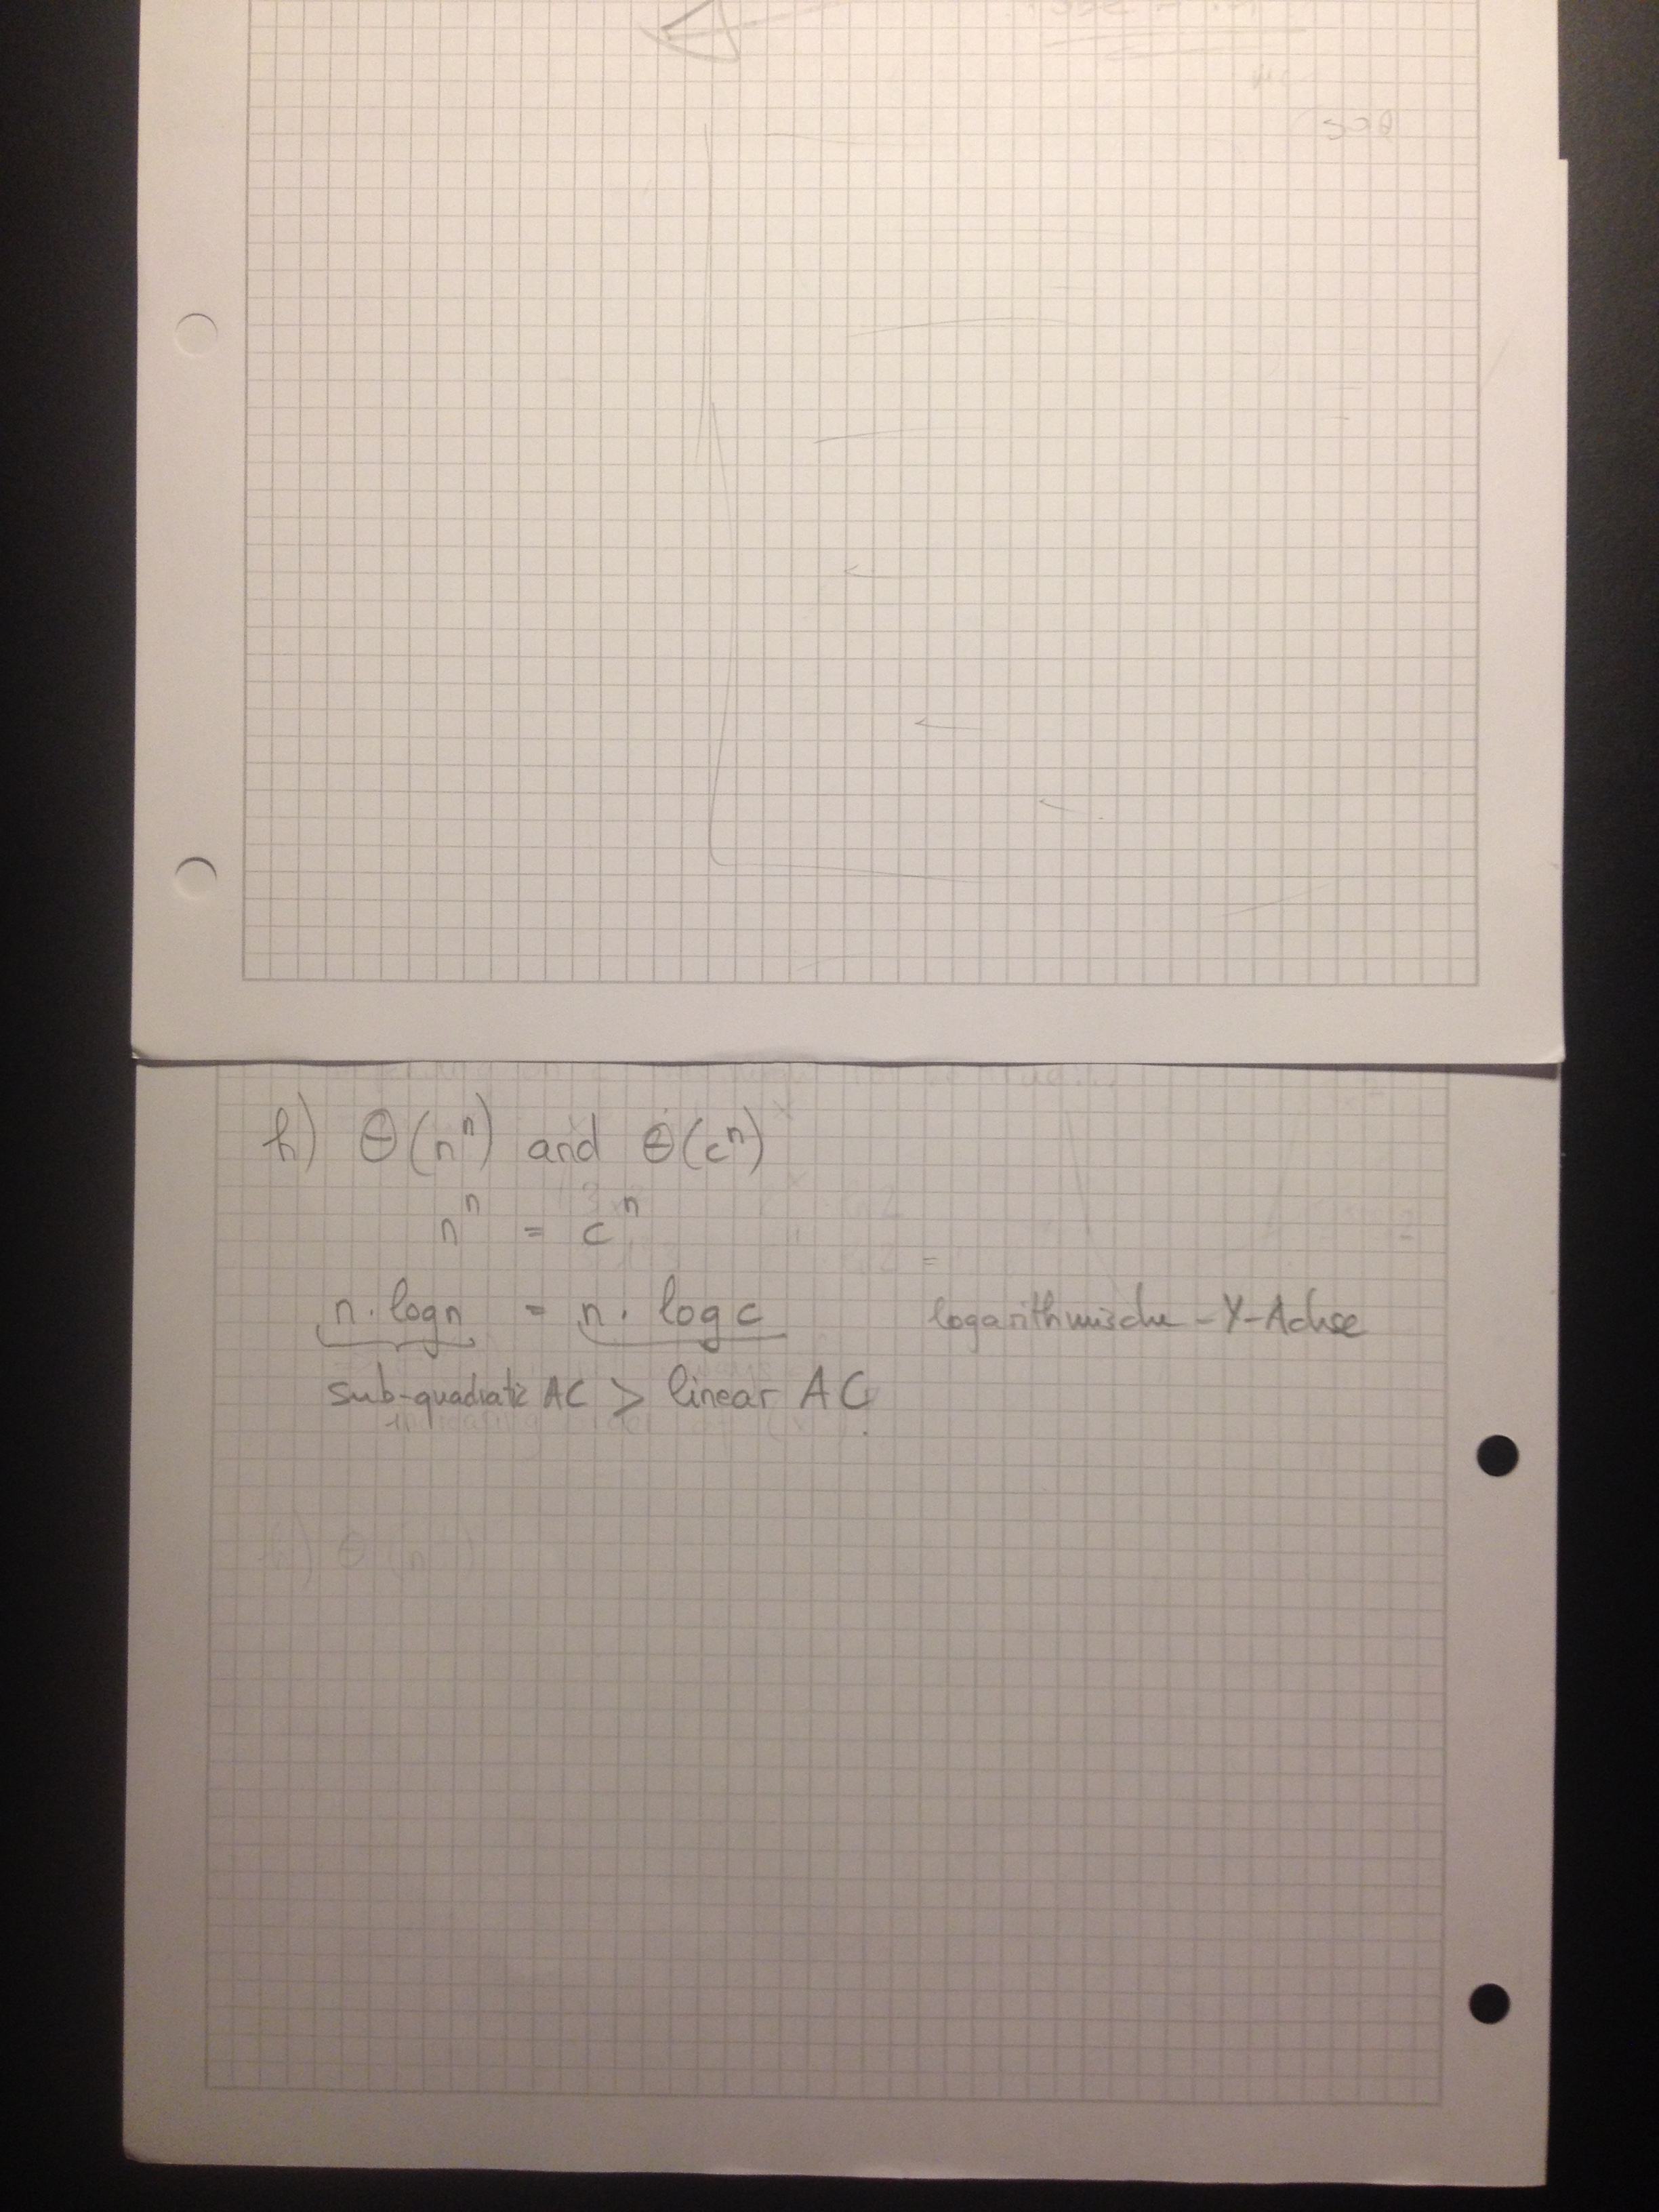 h) Θ(nⁿ) and Θ(cⁿ)
nⁿ = cⁿ
n · log n = n · log c logarithmische - Y-Achse
sub-quadratic AC > linear AC
h) Θ (n